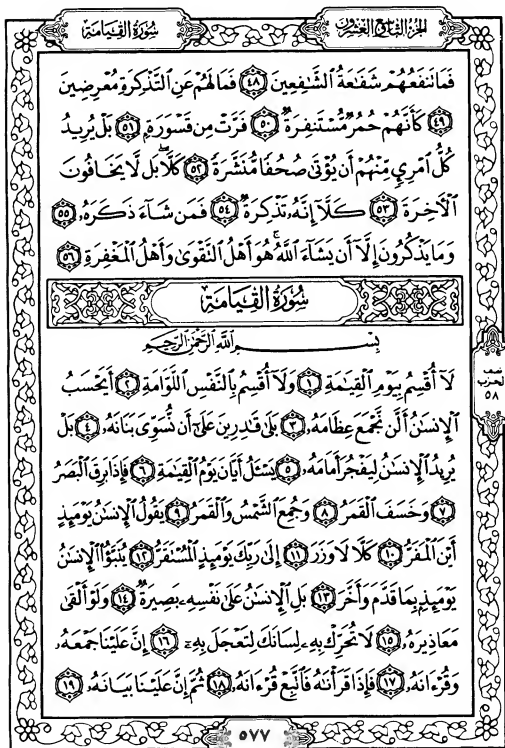 الجزء التاسع والعشرون
سورة القيامة
فَمَا تَنفَعُهُمْ شَفَاعَةُ الشَّافِعِينَ ٤٨ فَمَا لَهُمْ عَنِ التَّذْكِرَةِ مُعْرِضِينَ
٤٩ كَأَنَّهُمْ حُمُرٌ مُّسْتَنفِرَةٌ ٥٠ فَرَّتْ مِن قَسْوَرَةٍ ٥١ بَلْ يُرِيدُ
كُلُّ امْرِئٍ مِّنْهُمْ أَن يُؤْتَىٰ صُحُفًا مُّنَشَّرَةً ٥٢ كَلَّا بَل لَّا يَخَافُونَ
الْآخِرَةَ ٥٣ كَلَّا إِنَّهُ تَذْكِرَةٌ ٥٤ فَمَن شَاءَ ذَكَرَهُ ٥٥
وَمَا يَذْكُرُونَ إِلَّا أَن يَشَاءَ اللَّهُ هُوَ أَهْلُ التَّقْوَىٰ وَأَهْلُ الْمَغْفِرَةِ ٥٦
سُورَةُ الْقِيَامَةِ
بِسْمِ اللَّهِ الرَّحْمَٰنِ الرَّحِيمِ
لَا أُقْسِمُ بِيَوْمِ الْقِيَٰمَةِ ١ وَلَا أُقْسِمُ بِالنَّفْسِ اللَّوَّامَةِ ٢ أَيَحْسَبُ
الْإِنسَٰنُ أَلَّن نَّجْمَعَ عِظَامَهُ ٣ بَلَىٰ قَٰدِرِينَ عَلَىٰ أَن نُّسَوِّيَ بَنَانَهُ ٤ بَلْ
يُرِيدُ الْإِنسَٰنُ لِيَفْجُرَ أَمَامَهُ ٥ يَسْـَٔلُ أَيَّانَ يَوْمُ الْقِيَٰمَةِ ٦ فَإِذَا بَرِقَ الْبَصَرُ
٧ وَخَسَفَ الْقَمَرُ ٨ وَجُمِعَ الشَّمْسُ وَالْقَمَرُ ٩ يَقُولُ الْإِنسَٰنُ يَوْمَئِذٍ
أَيْنَ الْمَفَرُّ ١٠ كَلَّا لَا وَزَرَ ١١ إِلَىٰ رَبِّكَ يَوْمَئِذٍ الْمُسْتَقَرُّ ١٢ يُنَبَّؤُا الْإِنسَٰنُ
يَوْمَئِذٍ بِمَا قَدَّمَ وَأَخَّرَ ١٣ بَلِ الْإِنسَٰنُ عَلَىٰ نَفْسِهِ بَصِيرَةٌ ١٤ وَلَوْ أَلْقَىٰ
مَعَاذِيرَهُ ١٥ لَا تُحَرِّكْ بِهِ لِسَانَكَ لِتَعْجَلَ بِهِ ١٦ إِنَّ عَلَيْنَا جَمْعَهُ
وَقُرْءَانَهُ ١٧ فَإِذَا قَرَأْنَٰهُ فَاتَّبِعْ قُرْءَانَهُ ١٨ ثُمَّ إِنَّ عَلَيْنَا بَيَانَهُ ١٩
نصف
الحزب
٥٨
٥٧٧